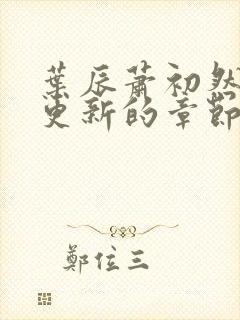 葉辰蕭初然
更新的章節
鄭位三